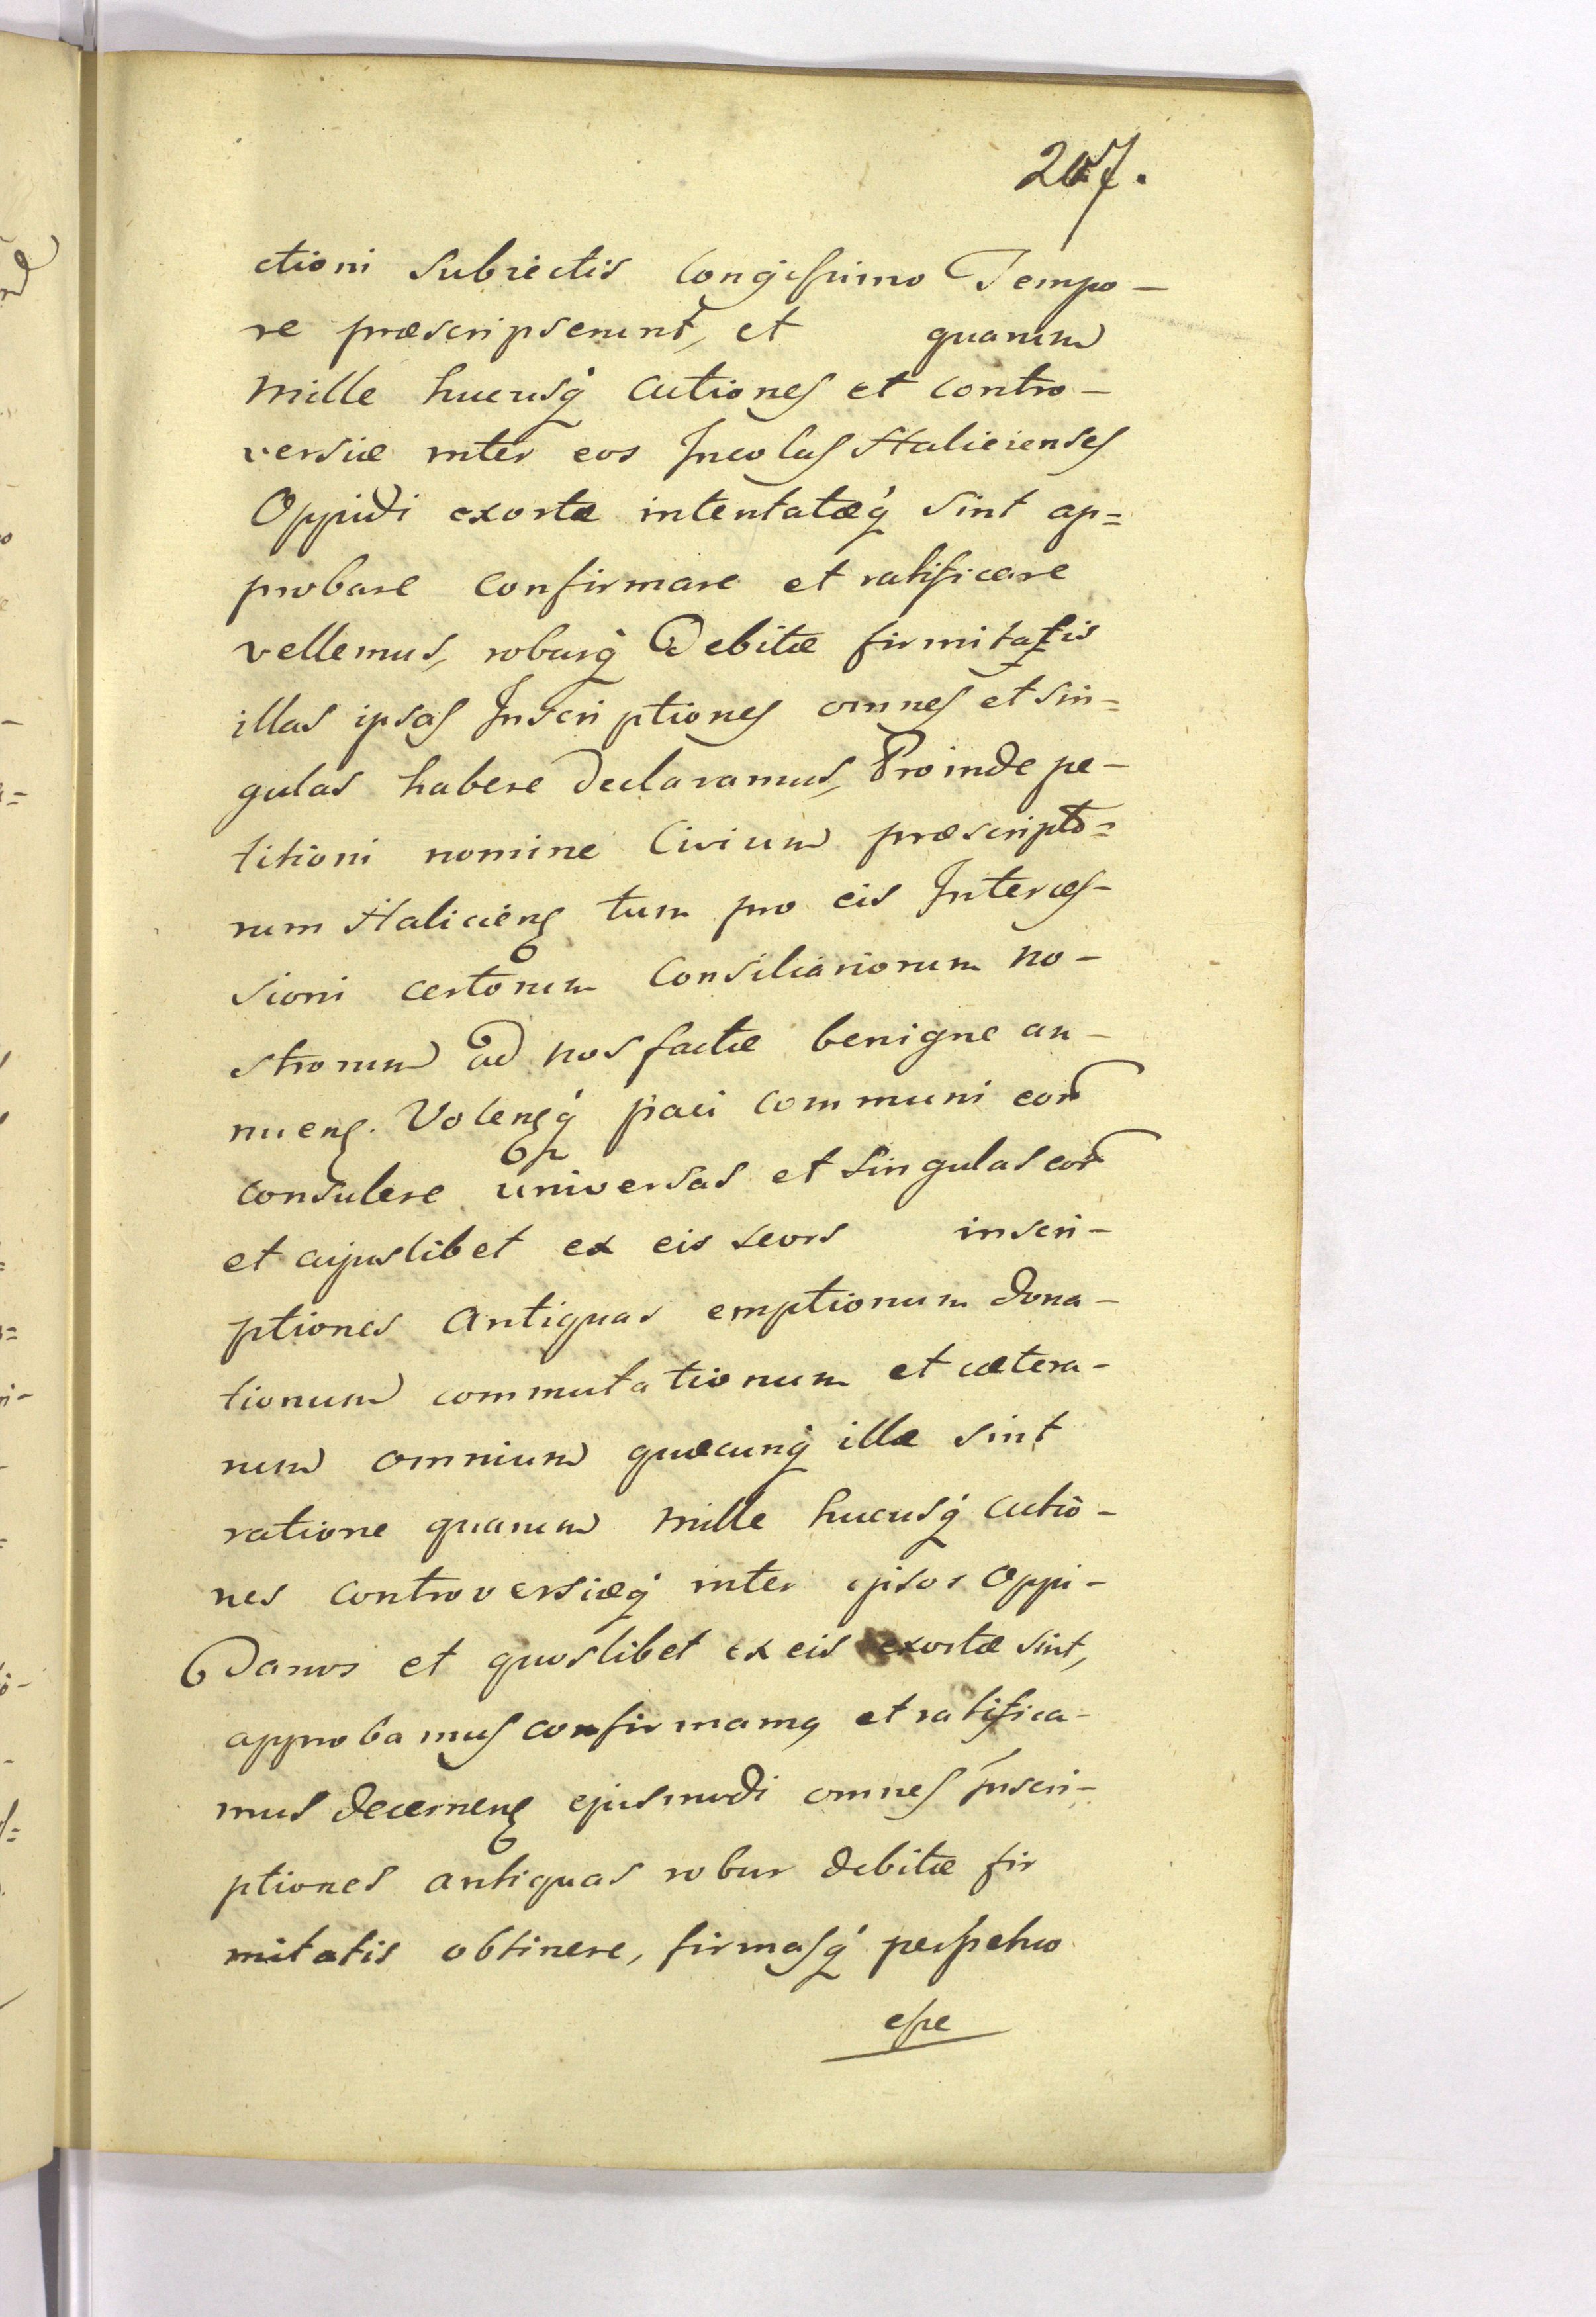 207.
ctioni subiectis longissimo Tempo-
re præscripserunt, et quarum
mille hucusq́ actiones et contro-
versiæ inter eos Incolas Halicienses
Oppidi exortæ intentatæq́ sint ap=
probare confirmare et ratificare
vellemus, roburq́ Debitæ firmitatis
illas ipsas Inscriptiones omnes et sin=
gulas habere declaramus, Proinde pe-
titioni nomine Civium præscripto=
rum Haliciens tum pro eis Interces-
sioni certorum Consiliariorum no-
strorum ad nos factæ benigne an-
nuens. Volensq́ paci communi eor̃
consulere universas et singulas eor̃
et cujuslibet ex eis seors inscri-
ptiones Antiquas emptionum dona-
tionum commutationum et cætera-
rum omnium quæcunq́ illæ sint
ratione quarum mille hucusq́ actio-
nes controversiæq́ inter ipsos Oppi-
Danos et quoslibet ex eis exortæ sint,
approbamus confirmamq et ratifica-
mus decernens ejusmodi omnes Inscri-
ptiones antiquas robur debitæ fir
mitatis obtinere, firmasq́ perpetuo
esse